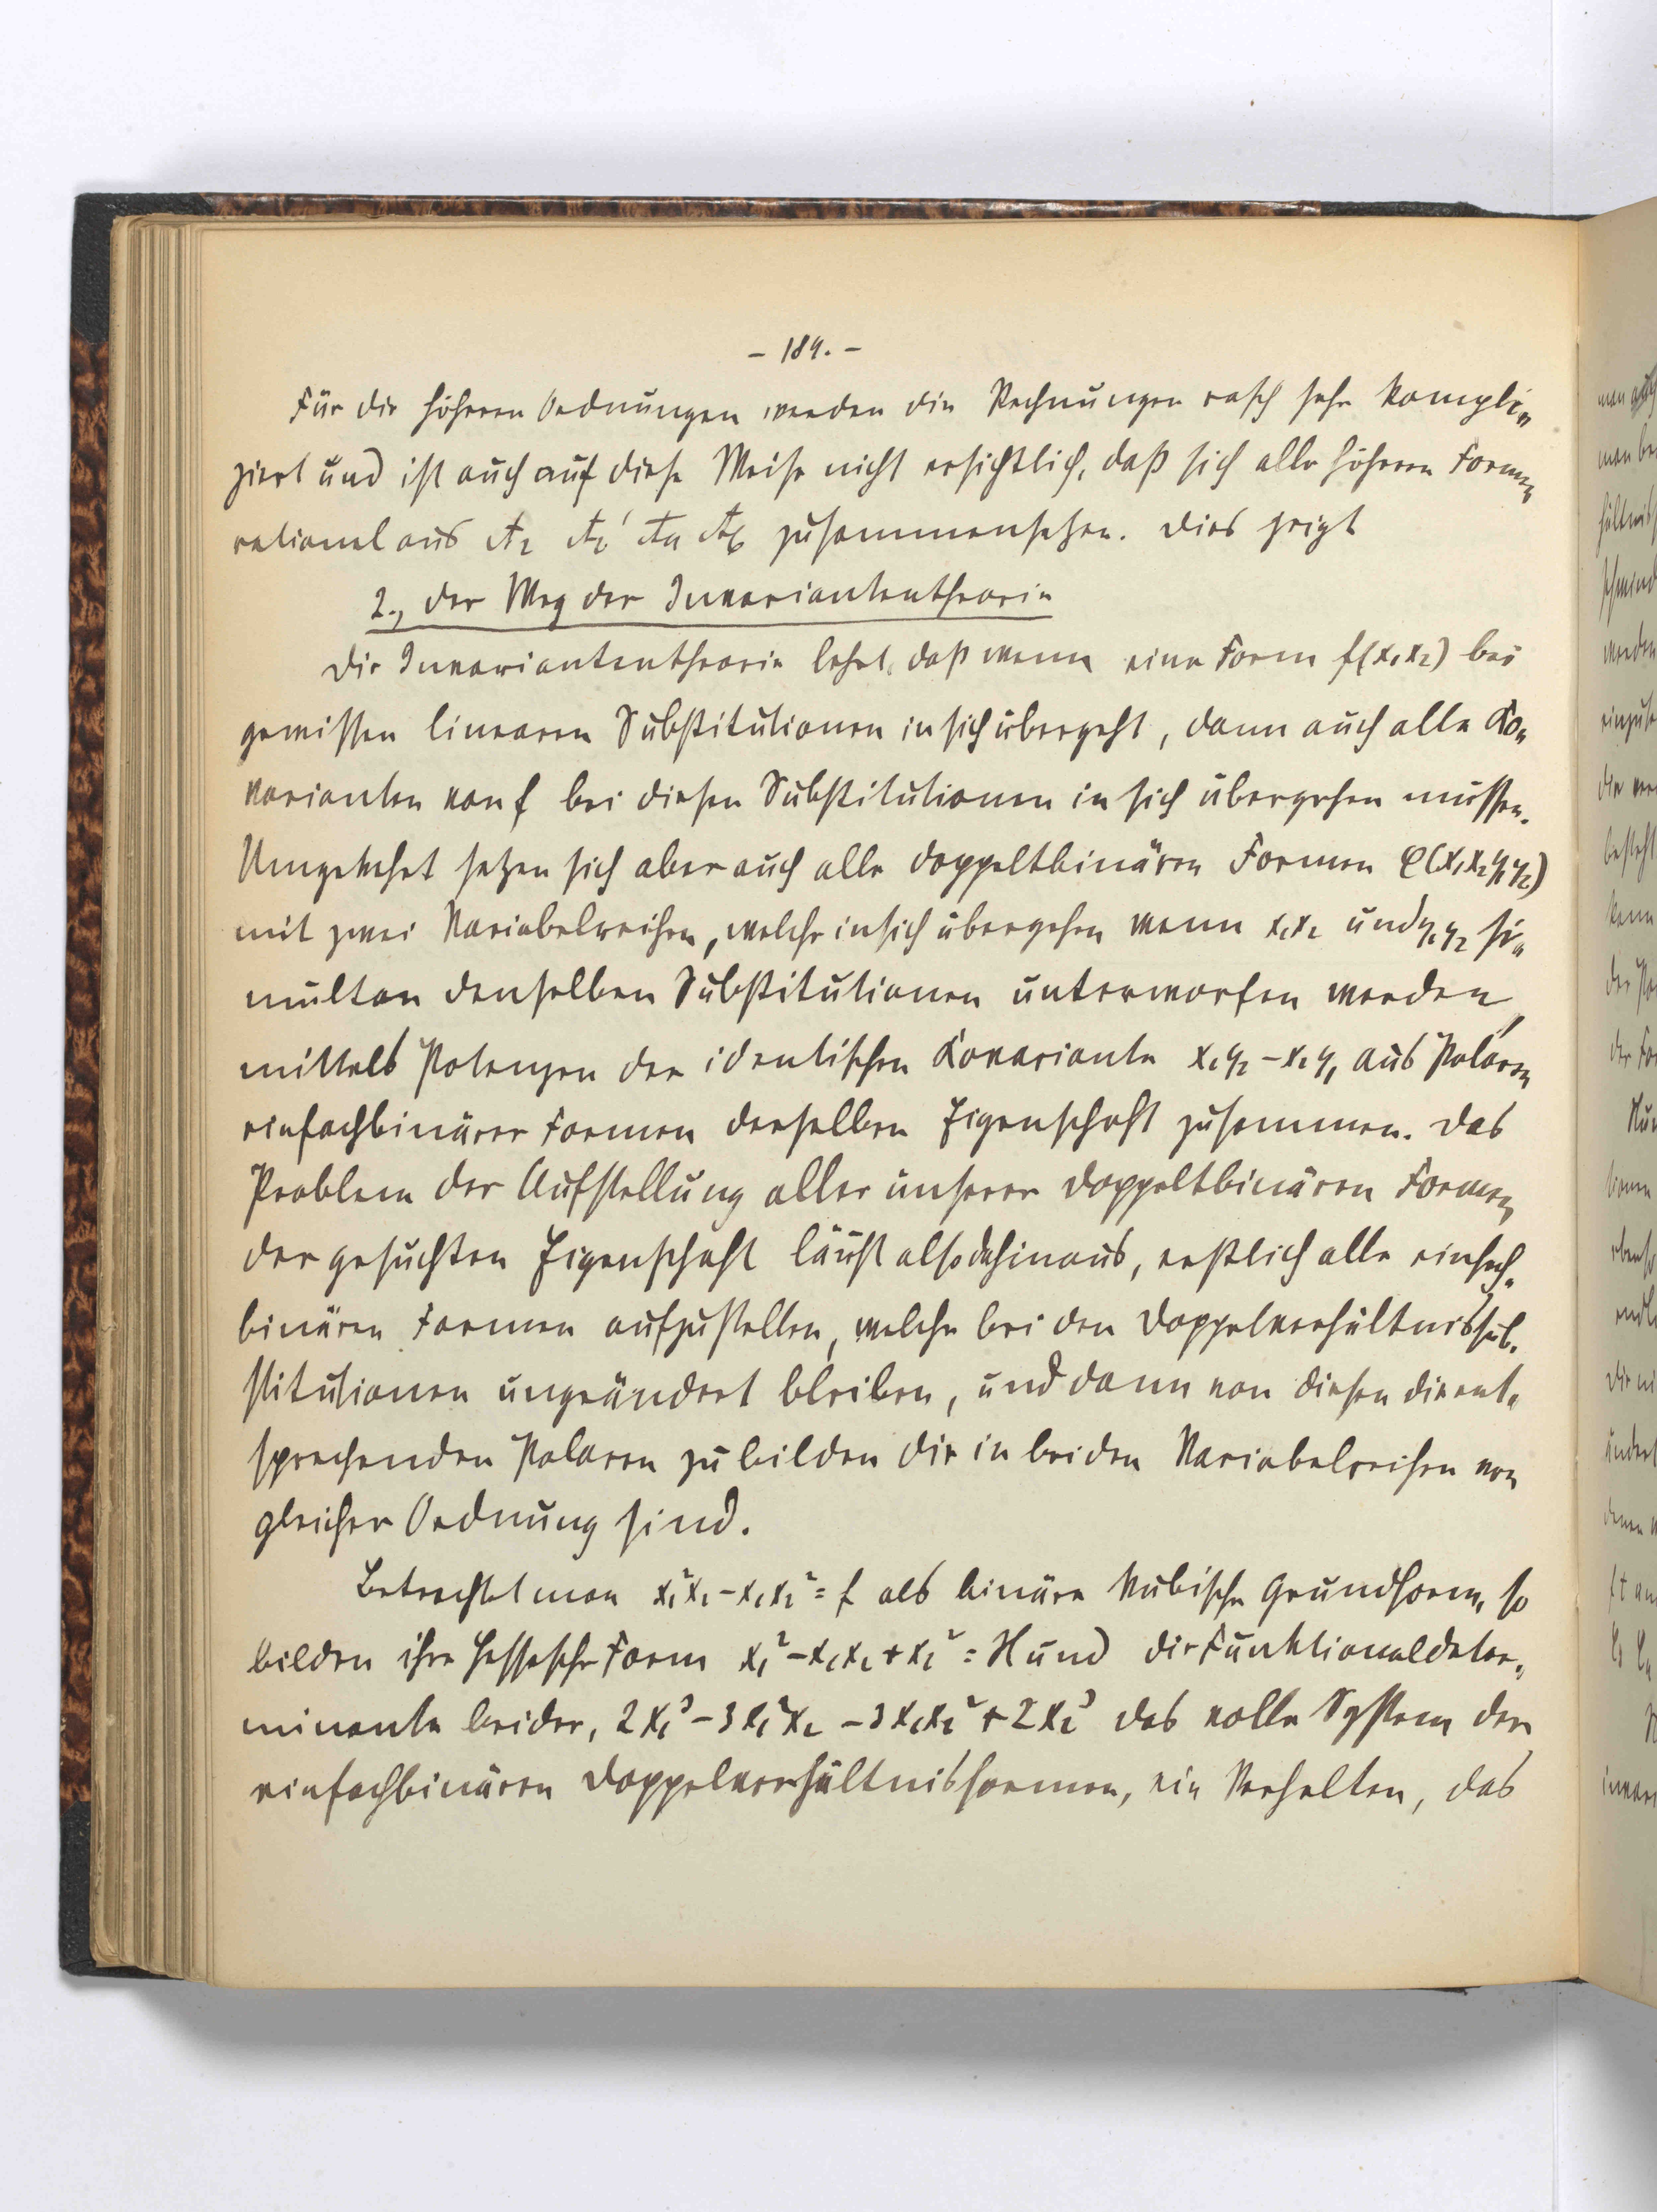 - 184. -
Für die höheren Ordnungen werden die Rechnungen rasch sehr kompli-
ziert und ist auch auf diese Weise nicht ersichtlich, daß sich alle höheren Formen
rational aus A₂ A₂' A₄ A₆ zusammensetzen. Dies zeigt
2., Der Weg der Invariantentheorie
Die Invariantentheorie lehrt, daß wenn eine Form f(x₁x₂) bei
gewissen linearen Substitutionen in sich übergeht, dann auch alle Ko-
varianten von f bei diesen Substitutionen in sich übergehen müssen.
Umgekehrt setzen sich aber auch alle doppeltbinären Formen φ(x₁x₂y₁y₂)
mit zwei Variabelreihen, welche in sich übergehen wenn x₁x₂ und y₁y₂ si-
multan denselben Substitutionen unterworfen werden,
mittels Potenzen der identischen Kovariante x₁y₂-x₂y₁ aus Polaren
einfachbinärer Formen derselben Eigenschaft zusammen. Das
Problem der Aufstellung aller unserer doppeltbinären Formen
der gesuchten Eigenschaft läuft also dahinaus, erstlich alle einfach-
binären Formen aufzustellen, welche bei den Doppelverhältnissub-
stitutionen ungeändert bleiben, und dann von diesen die ent-
sprechenden Polaren zu bilden die in beiden Variabelreihen von
gleicher Ordnung sind.
Betrachtet man x₁²x₂-x₁x₂² = f als binäre kubische Grundform, so
bilden ihre Hessesche Form x₁²-x₁x₂+x₂² = H und die Funktionaldeter-
minante beider, 2x₁³-3x₁²x₂-3x₁x₂²+2x₂³ das volle System der
einfachbinären Doppelverhältnisformen, ein Verhalten, das